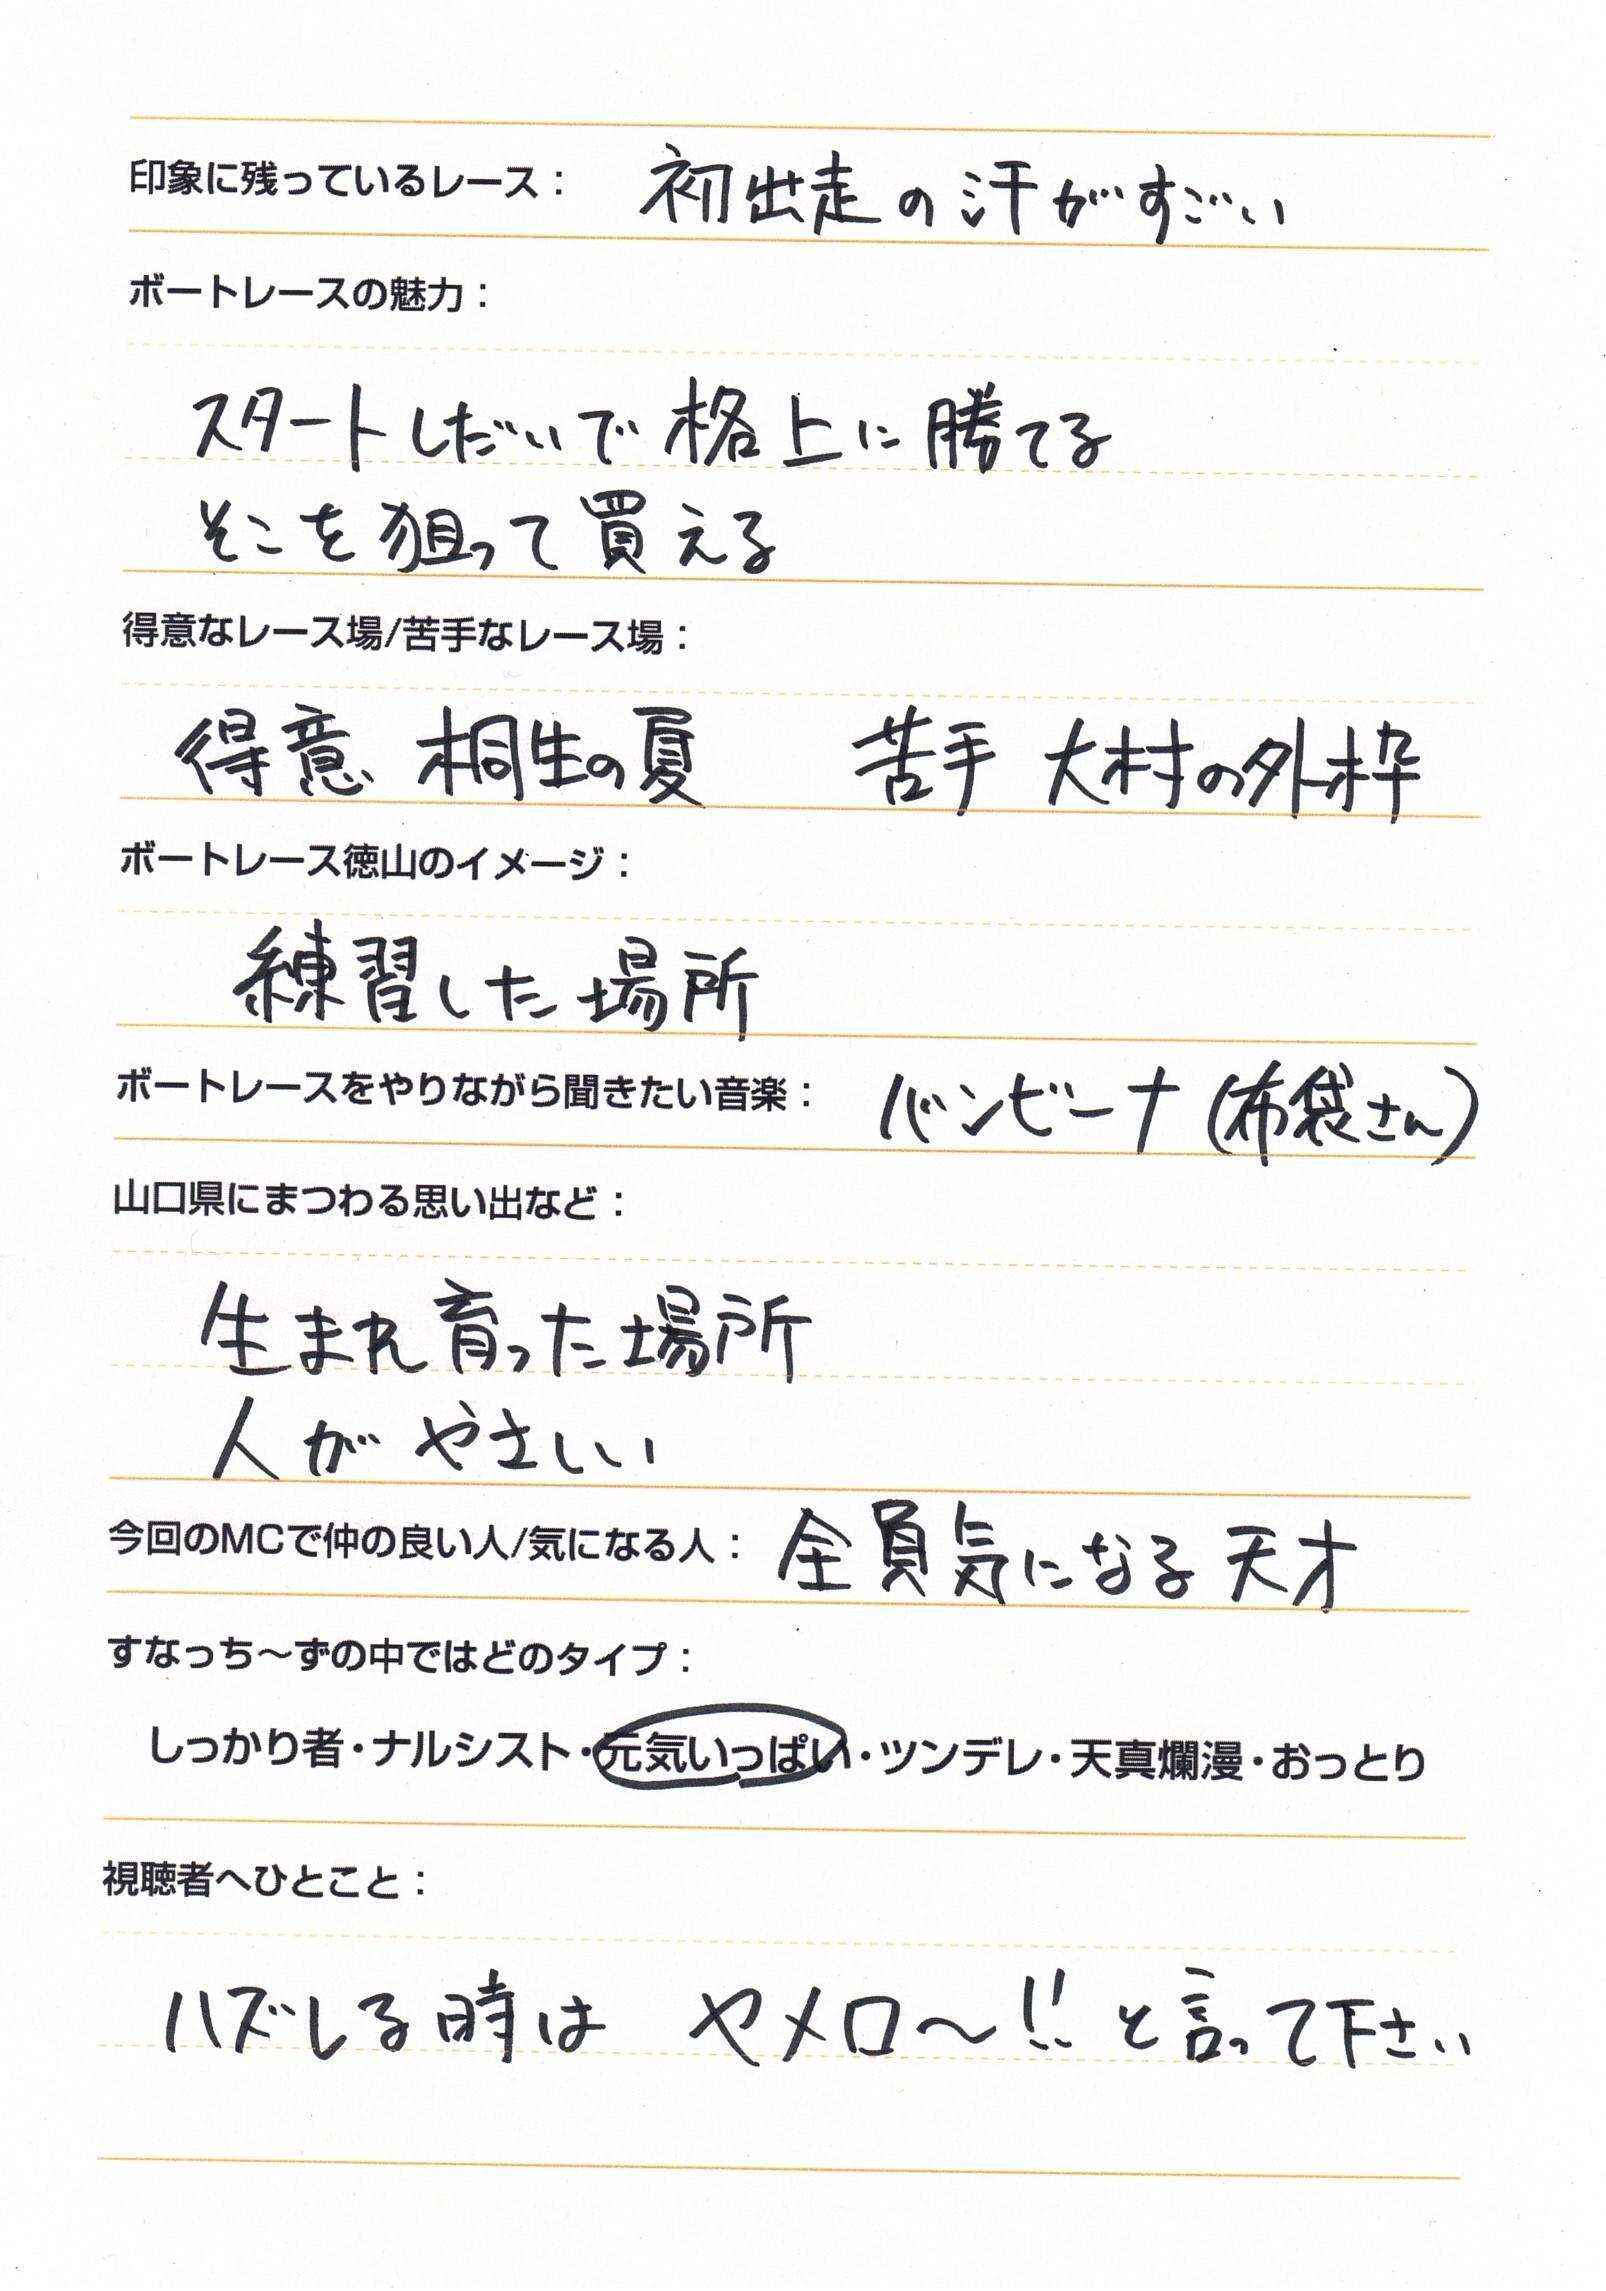 印象に残っているレース： 初出走の汗がすごい
ボートレースの魅力：
スタートしだいで格上に勝てる
そこを狙って買える
得意なレース場/苦手なレース場：
得意 桐生の夏 苦手 大村の外枠
ボートレース徳山のイメージ：
練習した場所
ボートレースをやりながら聞きたい音楽： バンビーナ（布袋さん）
山口県にまつわる思い出など：
生まれ育った場所
人がやさしい
今回のMCで仲の良い人/気になる人： 全員気になる天才
すなっち～ずの中ではどのタイプ：
しっかり者・ナルシスト・元気いっぱい・ツンデレ・天真爛漫・おっとり
視聴者へひとこと：
ハズレる時は ヤメロ～!! と言って下さい